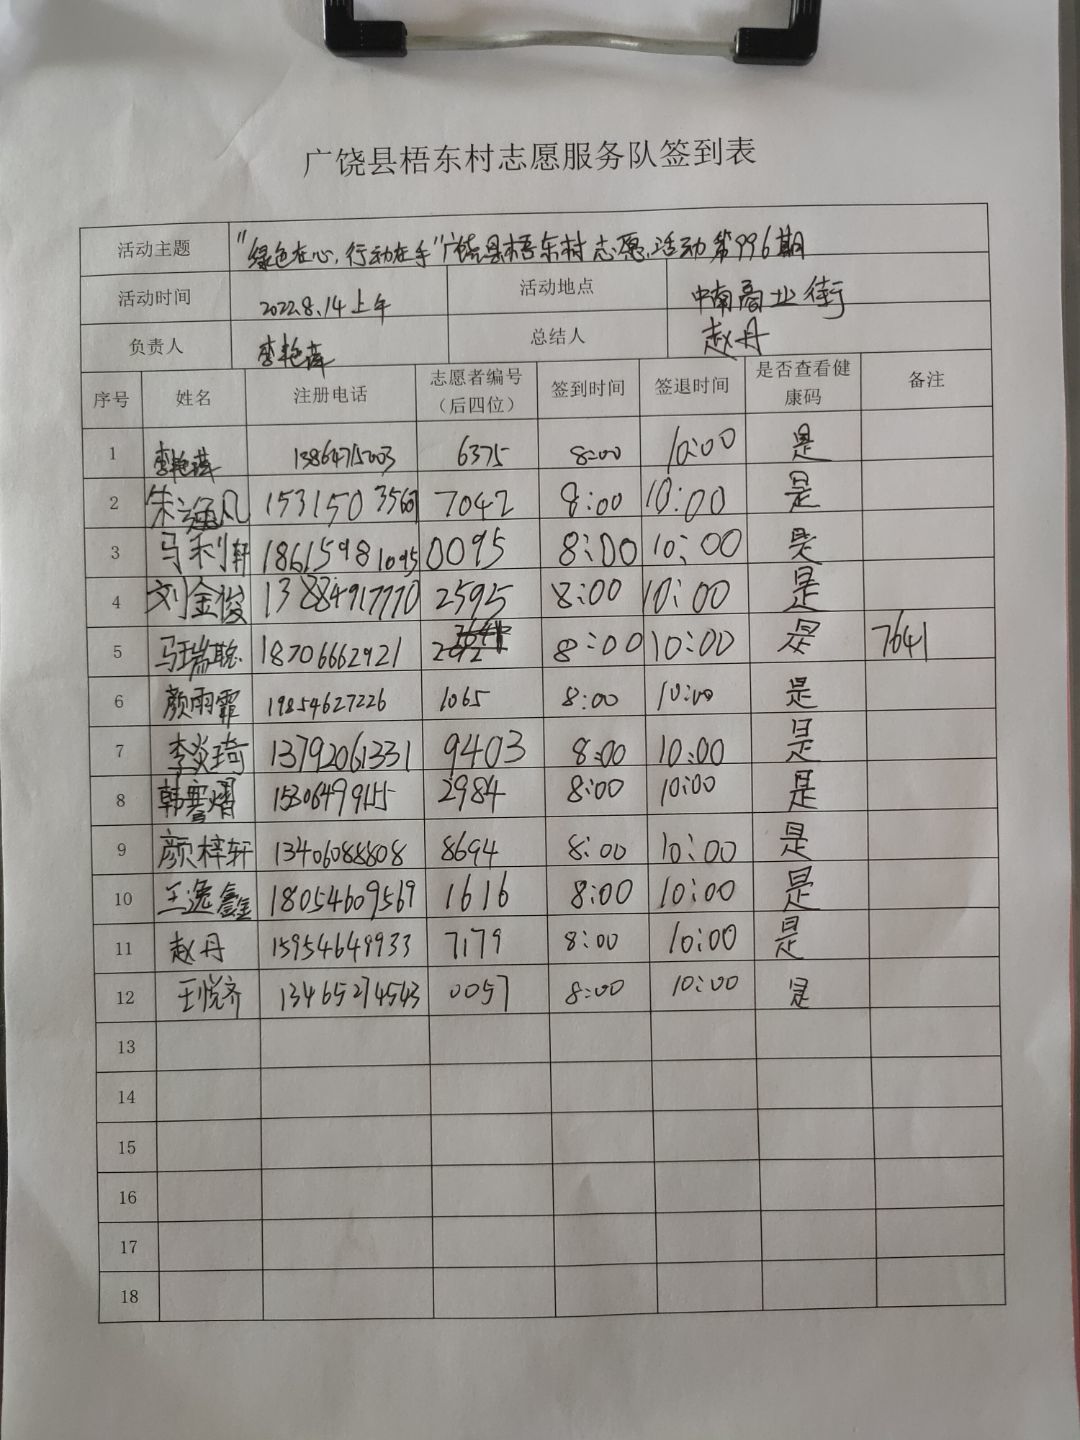 广饶县梧东村志愿服务队签到表
活动主题 "绿色在心,行动在手"广饶县梧东村志愿活动第996期
活动时间 2022.8.14上午 活动地点 中南商业街
负责人 李艳萍 总结人 赵丹
序号 姓名 注册电话 志愿者编号(后四位) 签到时间 签退时间 是否查看健康码 备注
1 李艳萍 13864715003 6375 8:00 10:00 是
2 朱 风 1531503560 7042 8:00 10:00 是
3 马利轩 18615981095 0095 8:00 10:00 是
4 刘金俊 13884917770 2595 8:00 10:00 是
5 马瑞聪 18706662921 8:00 10:00 是 7641
6 颜雨霏 19854627226 1065 8:00 10:00 是
7 李炎琦 13792061331 9403 8:00 10:00 是
8 韩 熠 15306499155 2984 8:00 10:00 是
9 颜梓轩 13406088808 8694 8:00 10:00 是
10 王逸鑫 18054609569 1616 8:00 10:00 是
11 赵丹 15954649933 7179 8:00 10:00 是
12 王悦齐 13465274543 0057 8:00 10:00 是
13
14
15
16
17
18